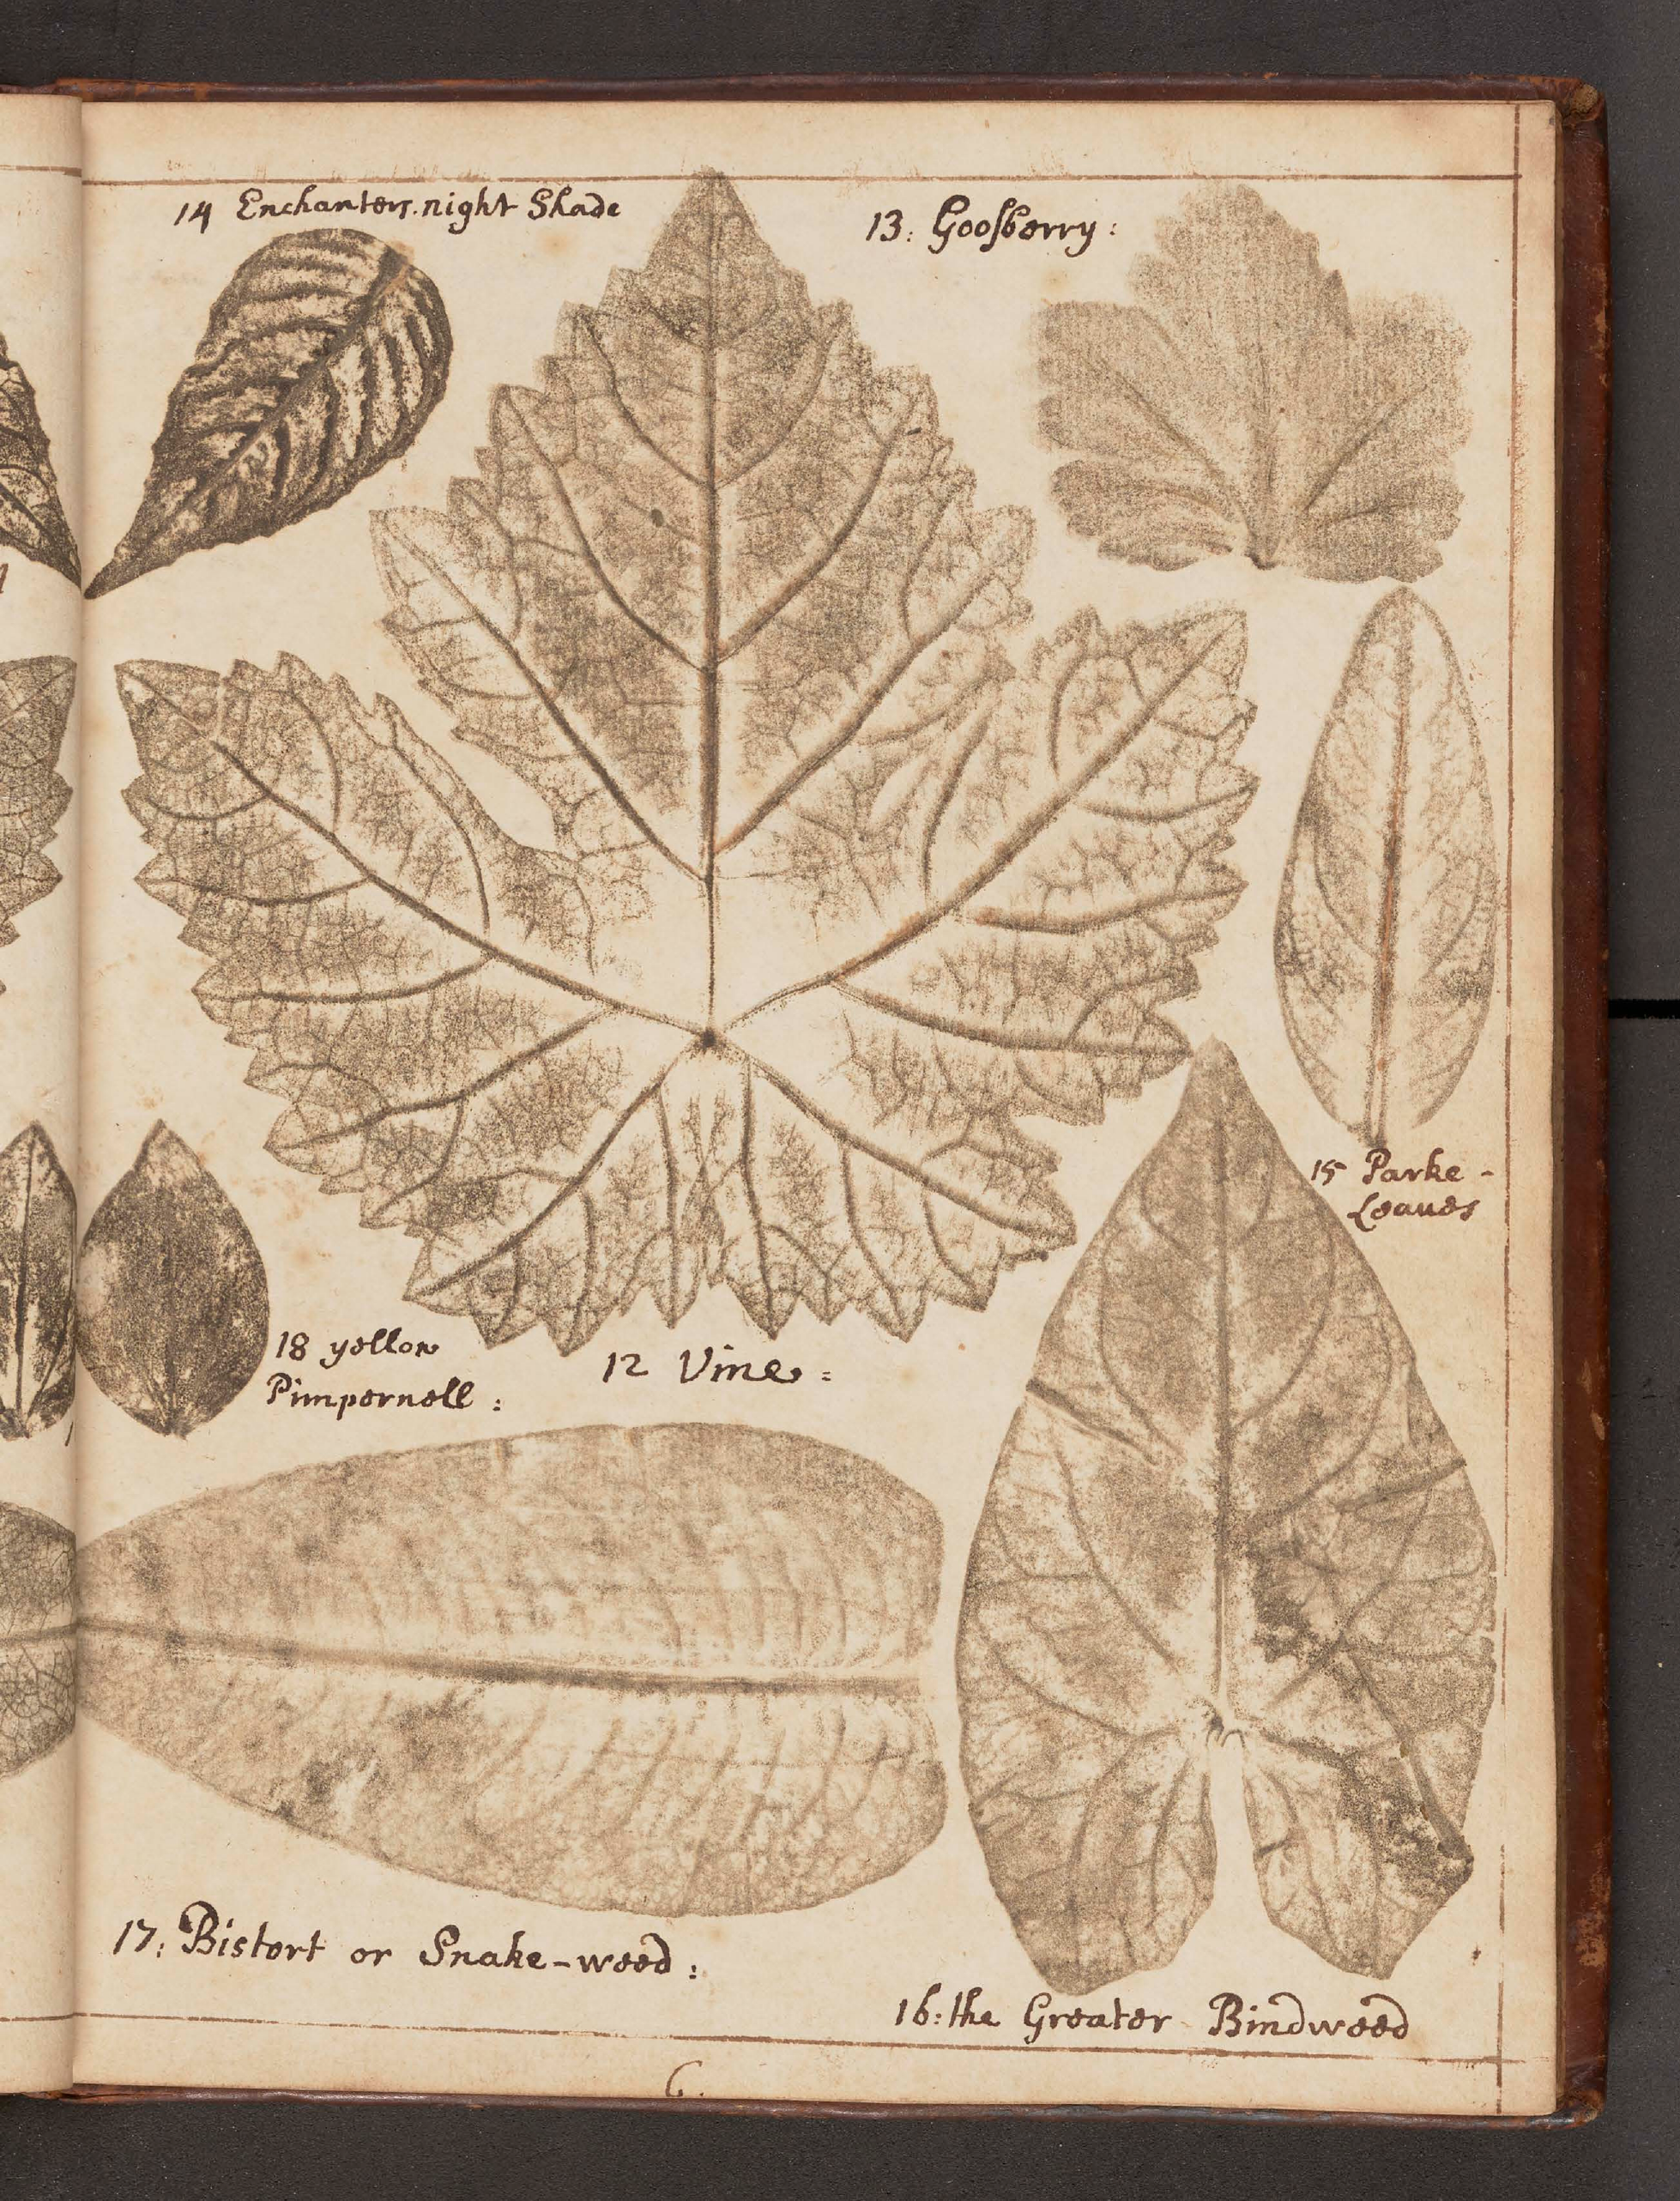 14 Enchanters night Shade
13: Gooſberry:
15 Parke-
Leaues
18 yellow
Pimpernell:
12 Vine:
17: Bistort or Snake-weed:
16: the Greater Bindweed
6.